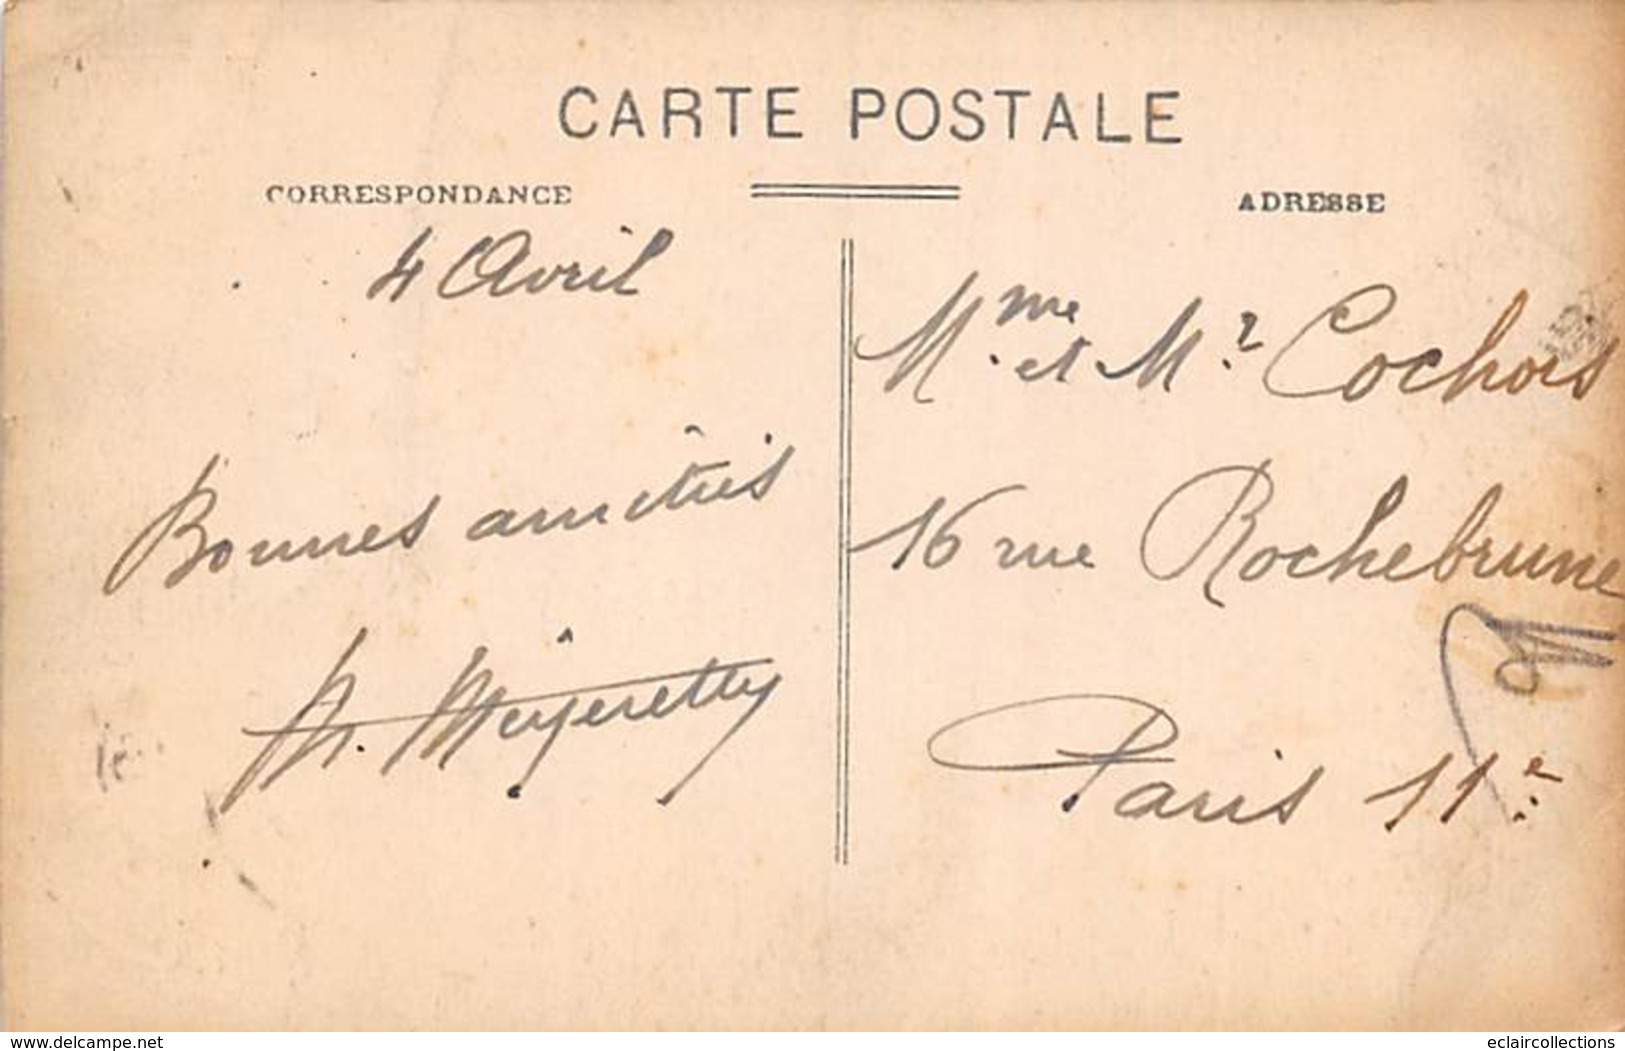 CARTE POSTALE
CORRESPONDANCE
ADRESSE
4 Avril
Bonnes amitiés
Mme et Mr Cochois
16 rue Rochebrune
Paris 11e
www.delcampe.net
eclaircollections